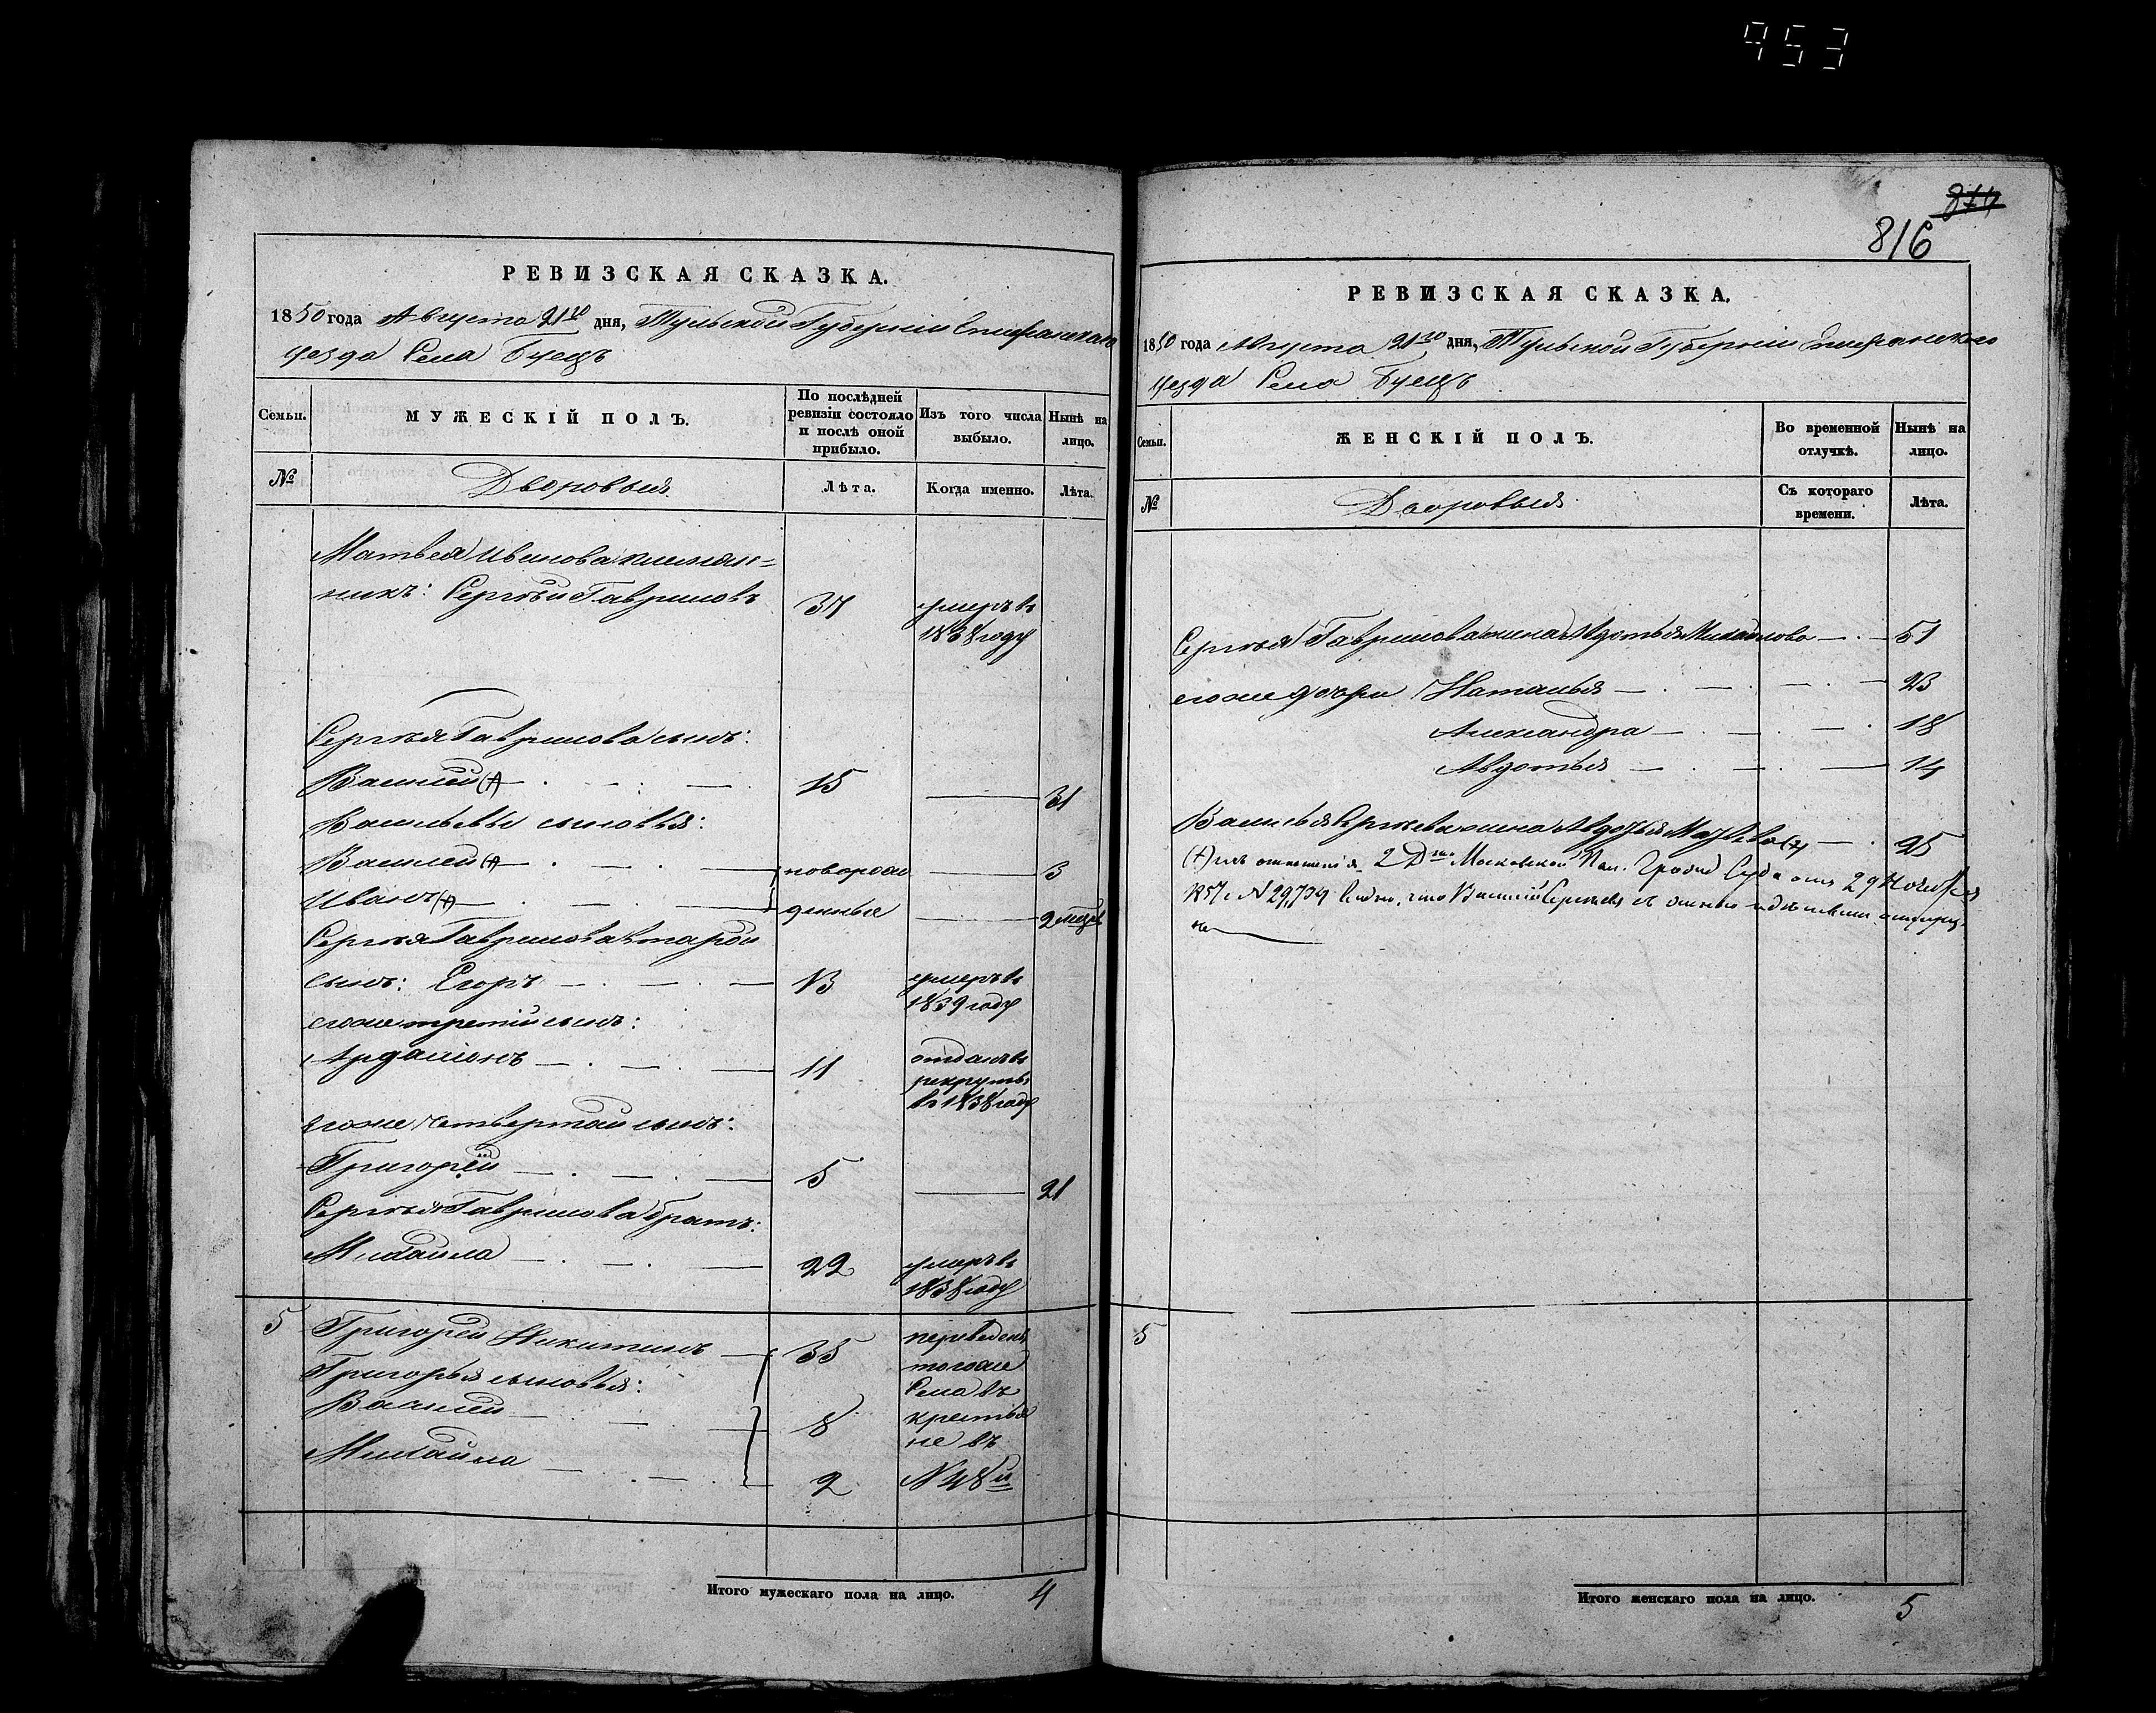 953
874
816
РЕВИЗСКАЯ СКАЗКА.
1850 года Августа 21го дня, Тульской Губерніи Епифанскаго
уезда Села Буецъ
Семьи.
МУЖЕСКІЙ ПОЛЪ.
По послѣдней ревизіи состояло и послѣ оной прибыло.
Изъ того числа выбыло.
Нынѣ на лицо.
№
Дворовыя
Лѣта.
Когда именно.
Лѣта.
Матвея Иванова племян-
никъ: Сергѣй Гавриловъ 37 умеръ въ
1838 году
Сергѣя Гаврилова сынъ:
Василей (+) 15 — 31
Васильевы сыновья:
Василей (+) новорож — 3
Иванъ (+) денные — 2 мѣсяц
Сергѣя Гаврилова второй
сынъ: Егоръ 13 умеръ въ
1839 году
егоже третій сынъ:
Ардаліонъ 11 отданъ въ
рекруты
въ 1838 году
егоже четвертой сынъ:
Григорей 5 — 21
Сергѣя Гаврилова братъ:
Михайла 22 умеръ въ
1838 году
5 Григорей Никитинъ 35 переведены
тогоже
Григорья сыновья:
Села въ
Василей 8 крестья
не въ
Михайла 2 № 48й
Итого мужескаго пола на лицо. 4
РЕВИЗСКАЯ СКАЗКА.
1850 года Августа 21го дня, Тульской Губерніи Епифанскаго
уезда Села Буецъ
Семьи.
ЖЕНСКІЙ ПОЛЪ.
Во временной отлучкѣ.
Нынѣ на лицо.
№
Дворовыя
Съ котораго времени.
Лѣта.
Сергѣя Гаврилова жена Авдотья Михайлова 51
егоже дочери Наталья 23
Александра 18
Авдотья 14
Василья Сергѣева жена Авдотья Матвѣва (+) 25
(+) изъ отношенія 2 Дта Московской Пал. Гражд Суда отъ 29 Ноября
1857 г № 29,704 видно, что Василій Сергѣевъ съ
на
5
Итого женскаго пола на лицо. 5